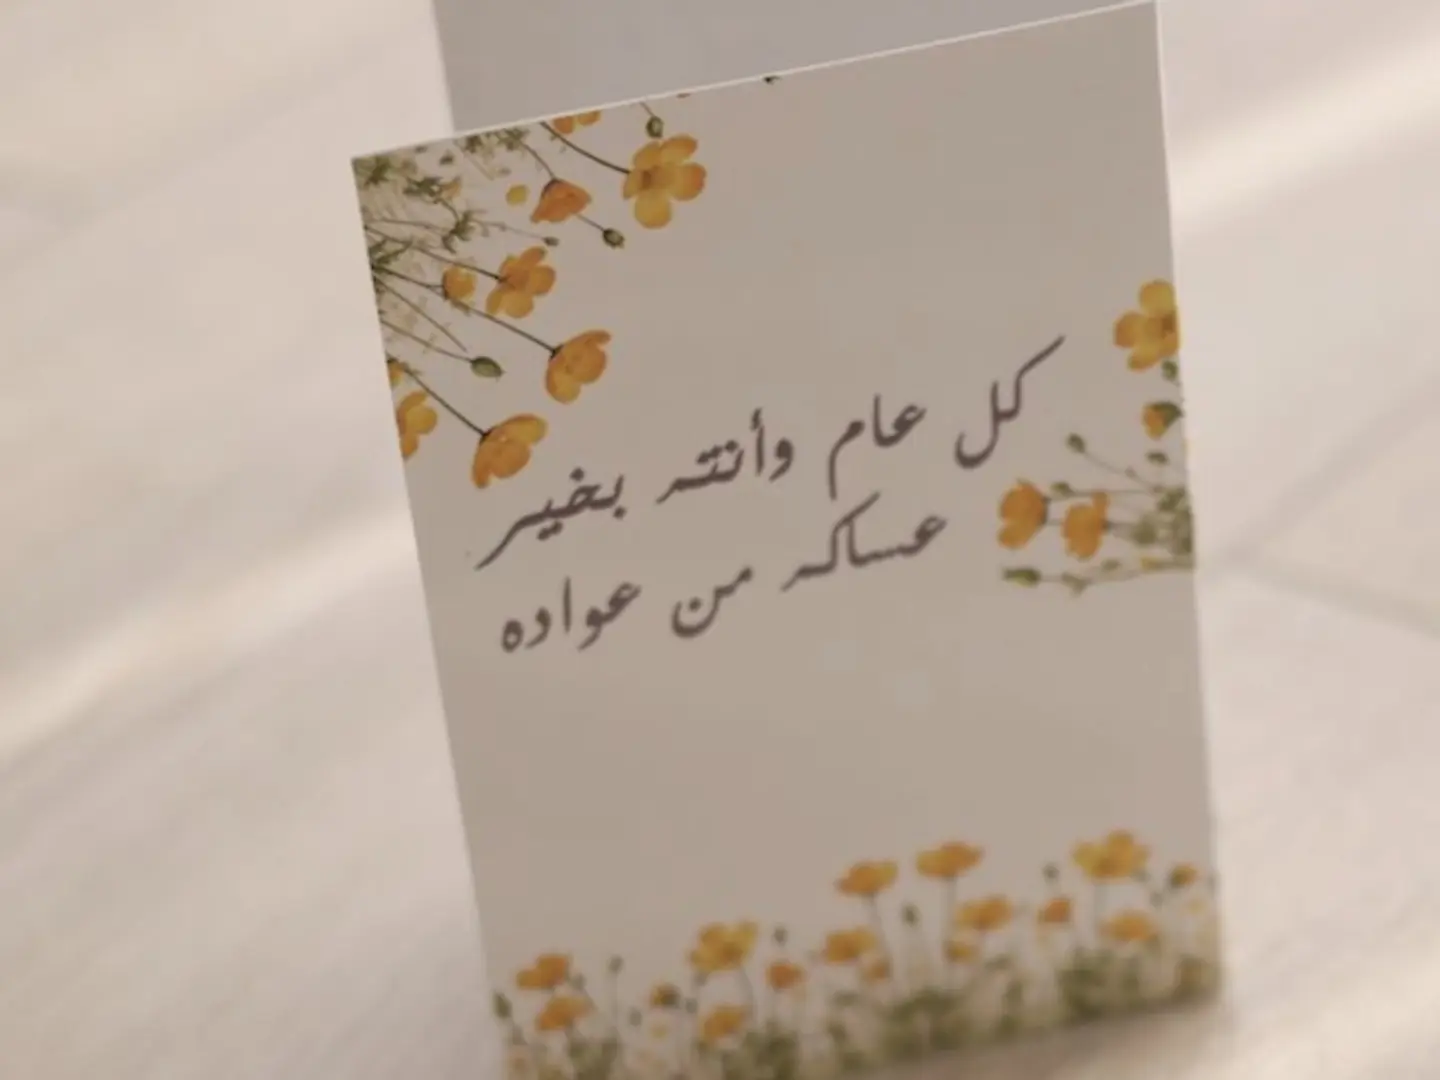 كل عام وأنتم بخير
عساكم من عواده